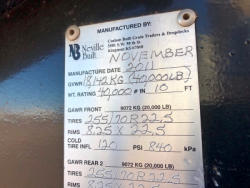 NB Neville Built
Custom Built Grain Trailers & Dropdecks
Kingman KS 67068
NOVEMBER
MANUFACTURE DATE 2011
GVWR 18,142 KG (40,000LB)
WT. RATING 40,000 # IN 10 FT
GAWR FRONT 9072 KG (20,000 LB)
TIRES 255/70R22.5
RIMS 8.25 X 22.5
COLD
TIRE INFL. 120 PSI 840 kPa
GAWR REAR 2 9072 KG (20,000 LB)
TIRES 255/70R22.5
RIMS 8.25 X 22.5